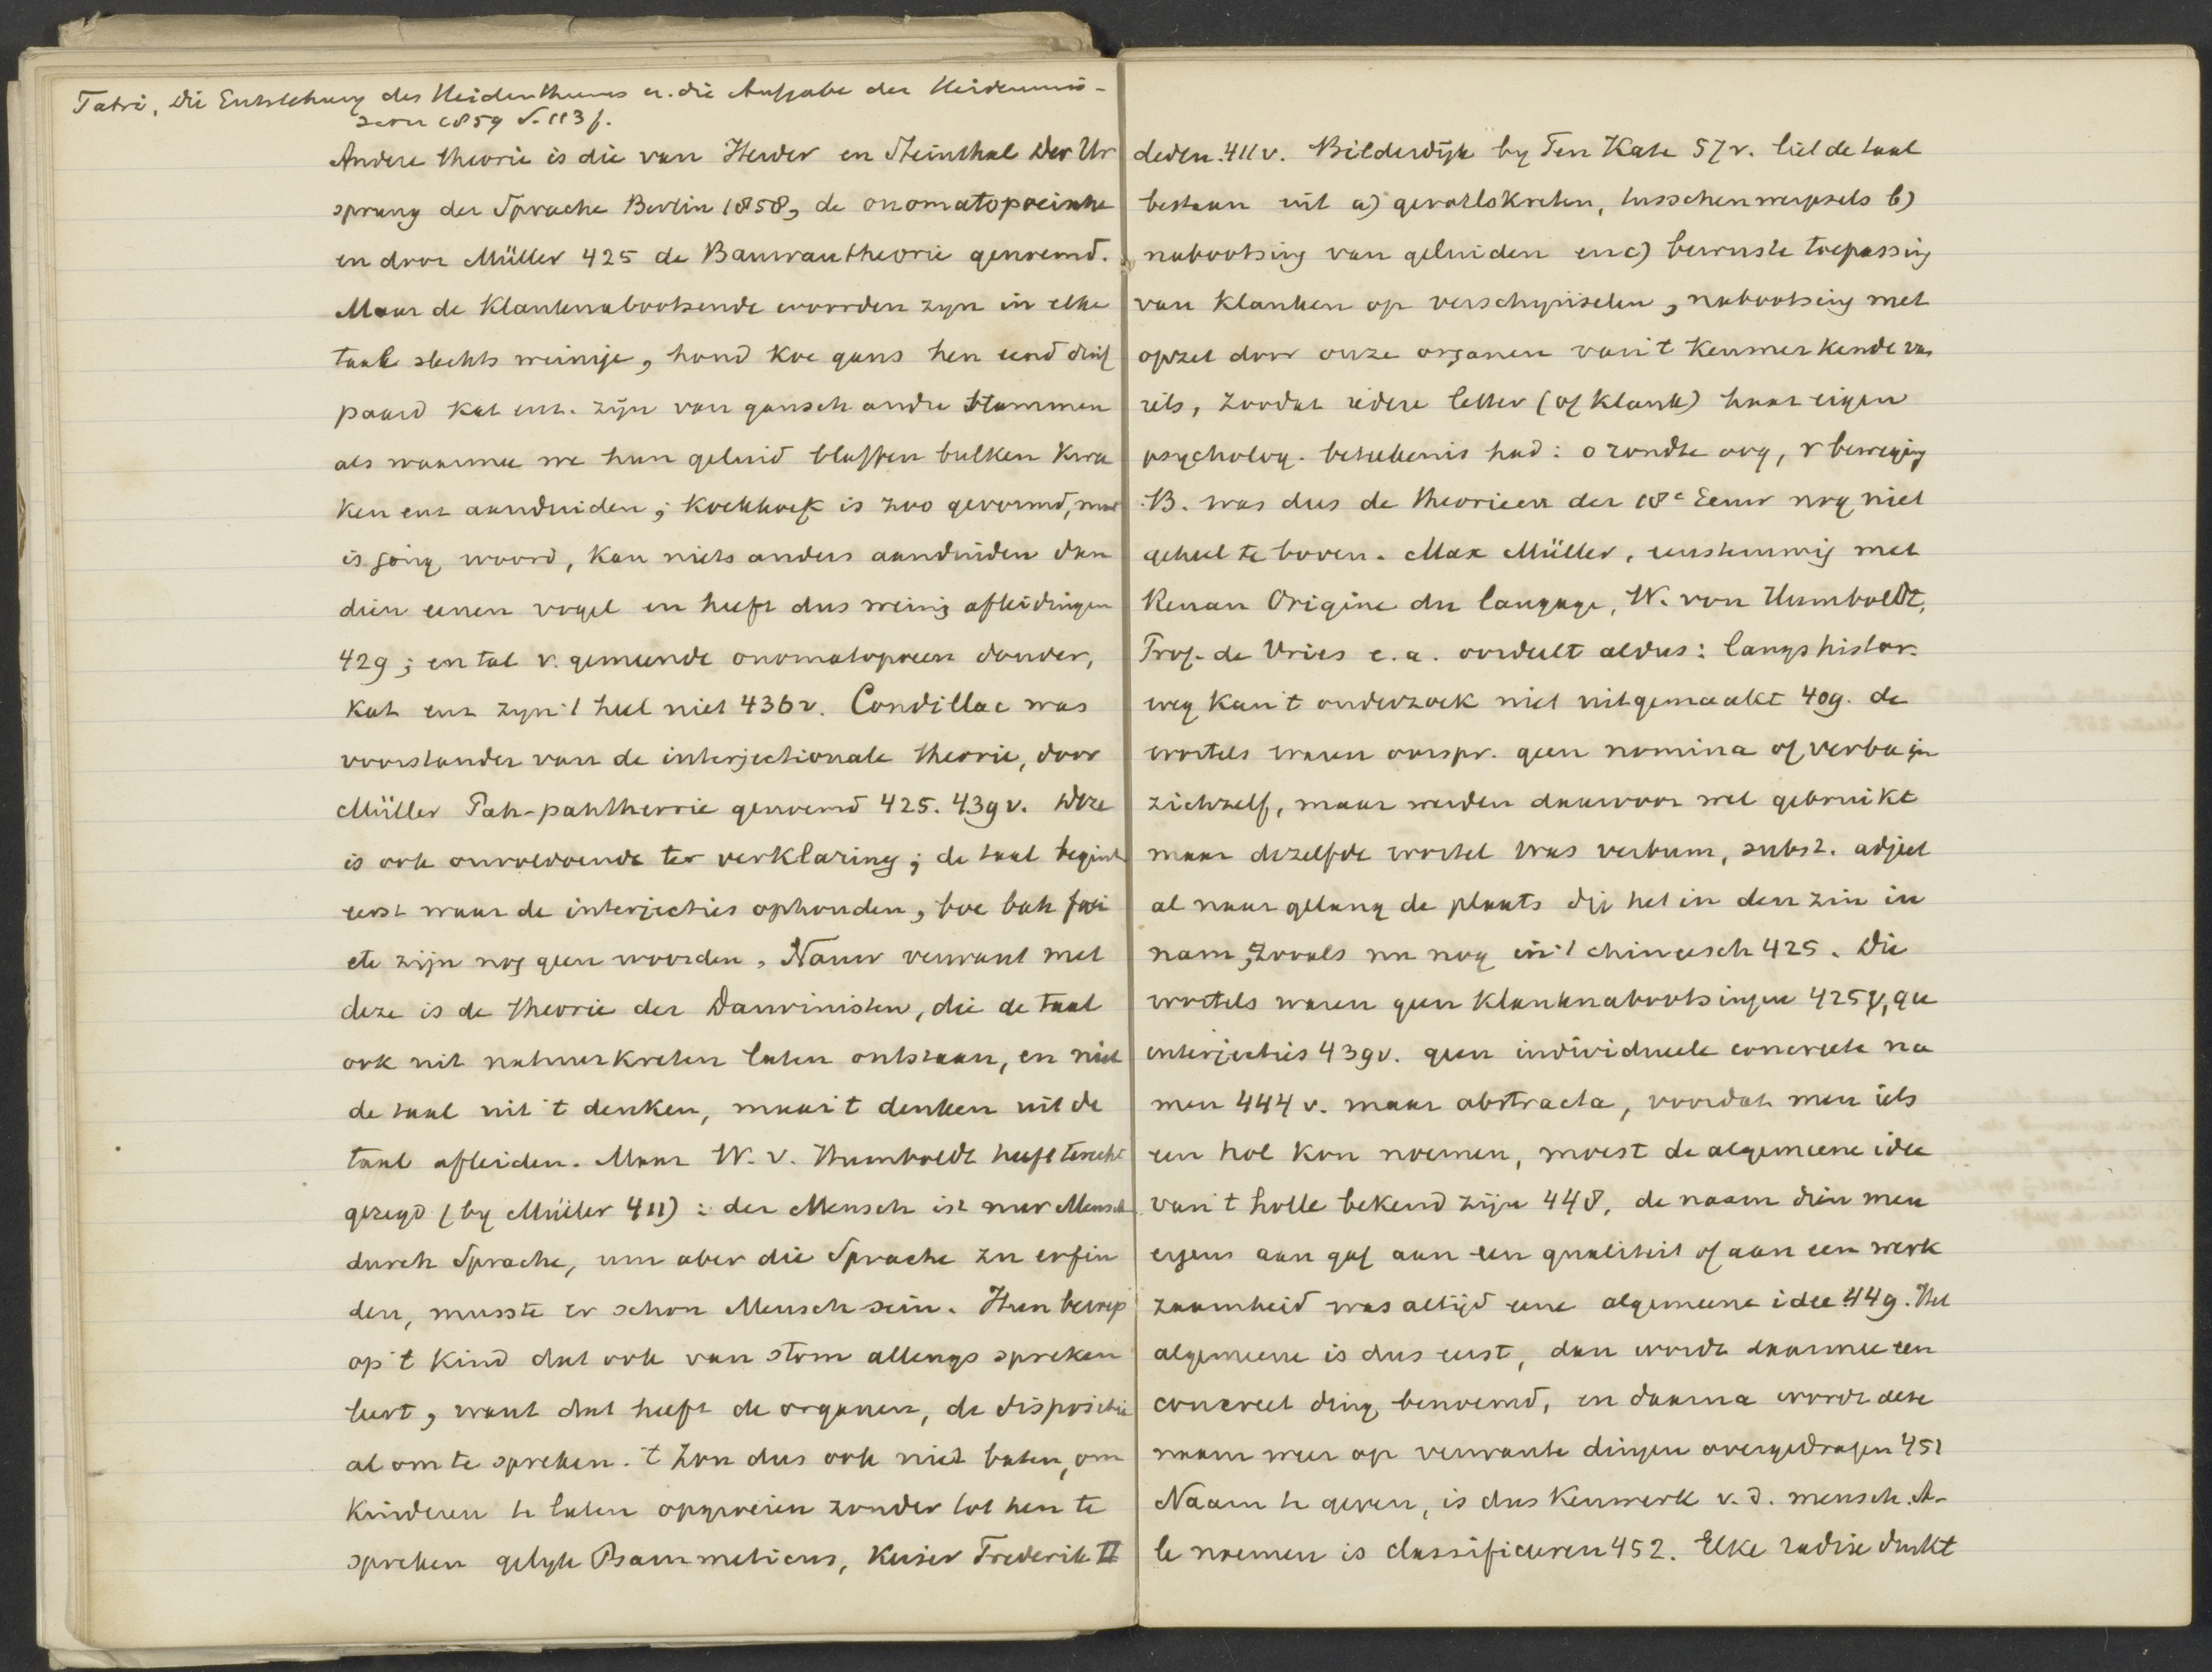 Tabri, Die Entstehung des Heidenthums u. die Aufgabe der Heidenmis-
sion 1859 S. 113 f.
Andere theorie is die van Herder en Steinthal Der Ur
sprung der Sprache Berlin 1858, de onomatopoeische
en door Müller 425 de Bauwau theorie genoemd.
Maar de klanknabootsende woorden zyn in elke
taal slechts weinige, hond koe gans hen eend duif
paard kat enz. zijn van gansch andre stammen
als waarmee we hun geluid blaffen bulken kwa
ken enz aanduiden; koekkoek is zoo gevormd, maar
is jong woord, kan niets anders aanduiden dan
dien eenen vogel en heeft dus weinig afleidingen
429; en tal v. gemeende onomatopeen donder,
kat enz zyn 't heel niet 436v. Condillac was
voorstander van de interjectionale theorie, door
Müller Pah-pahtheorie genoemd 425. 439v. Deze
is ook onvoldoende ter verklaring; de taal begint
eerst waar de interjecties ophouden, boe bah foei
etc zijn nog geen woorden. Nauw verwant met
deze is de theorie der Darwinisten, die de taal
ook uit natuurkreten laten ontstaan, en niet
de taal uit 't denken, maar 't denken uit de
taal afleiden. Maar W. v. Humboldt heeft terecht
gezegd (by Müller 411): der Mensch ist nur Mensch
durch Sprache, um aber die Sprache zu erfin
den, musste er schon Mensch sein. Hun beroep
op 't kind dat ook van stom allengs spreken
leert, want dat heeft de organen, de dispositie
al om te spreken. 't Zou dus ook niet baten, om
kinderen te laten opgroeien zonder tot hen te
spreken gelyk Psammeticus, Keiser Frederik II
deden 411v. Bilderdijk by Ten Kate 57v. liet de taal
bestaan uit a) gevoelskreten, tusschenwerpsels b)
nabootsing van geluiden en c) bewuste toepassing
van klanken op verschynselen, nabootsing met
opzet door onze organen van 't kenmerkende van
iets, zoodat iedere letter (of klank) haar eigen
psycholog. beteekenis had: o rondte oog, r beweging
B. was dus de theorieen der 18e Eeuw nog niet
geheel te boven. Max Müller, eenstemmig met
Renan Origine du langage, W. von Humboldt,
Prof. de Vries e.a. oordeelt aldus: langs histor.
weg kan 't onderzoek niet uitgemaakt 409. de
wortels waren oorspr. geen nomina of verba in
zichzelf, maar werden daarvoor wel gebruikt
maar dezelfde wortel was verbum, subst. adject
al naar gelang de plaats die het in den zin in
nam, zooals nu nog in 't chineesch 425. Die
wortels waren geen klanknabootsingen 425v, gee
interjecties 439v. geen individueele concrete na
men 444v. maar abstracta, voordat men iets
een hol kon noemen, moest de algemeene idee
van 't holle bekend zijn 448, de naam dien men
ergens aan gaf aan een qualiteit of aan een werk
zaamheid was altijd eene algemeene idee 449. Het
algemeene is dus eerst, dan wordt daarmee een
concreet ding benoemd, en daarna wordt deze
naam weer op verwante dingen overgedragen 451
Naam te geven, is dus kenmerk v. d. mensch. A-
le noemen is classificeren 452. Elke radix drukt